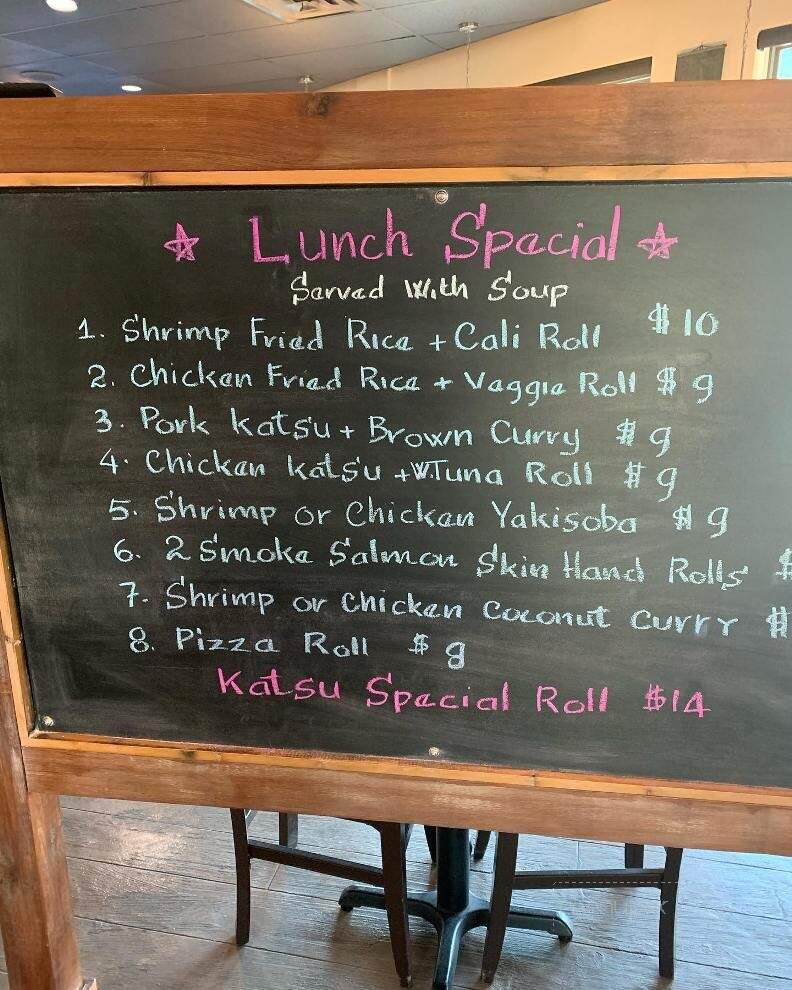 ☆ Lunch Special ☆
Served With Soup
1. Shrimp Fried Rice + Cali Roll $10
2. Chicken Fried Rice + Veggie Roll $9
3. Pork Katsu + Brown Curry $9
4. Chicken Katsu + W.Tuna Roll $9
5. Shrimp or Chicken Yakisoba $9
6. 2 Smoke Salmon Skin Hand Rolls $
7. Shrimp or Chicken Coconut Curry $
8. Pizza Roll $9
Katsu Special Roll $14